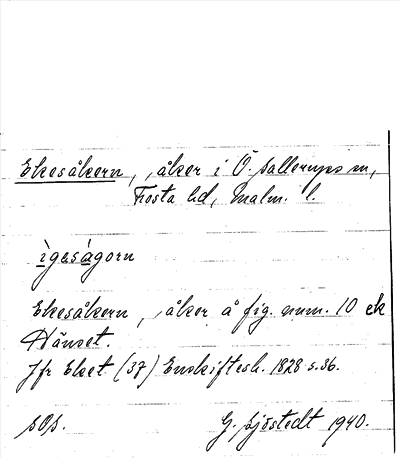 Ekesåkern, åker i Ö. Sallerups sn,
Frosta hd, Malm. l.
ìgəságorn
Ekesåkern, åker å fig. num. 10 ek
Hänset.
Jfr Eket (37) Enskiftesh. 1828 s. 36.
sOs.
G. Sjöstedt 1940.